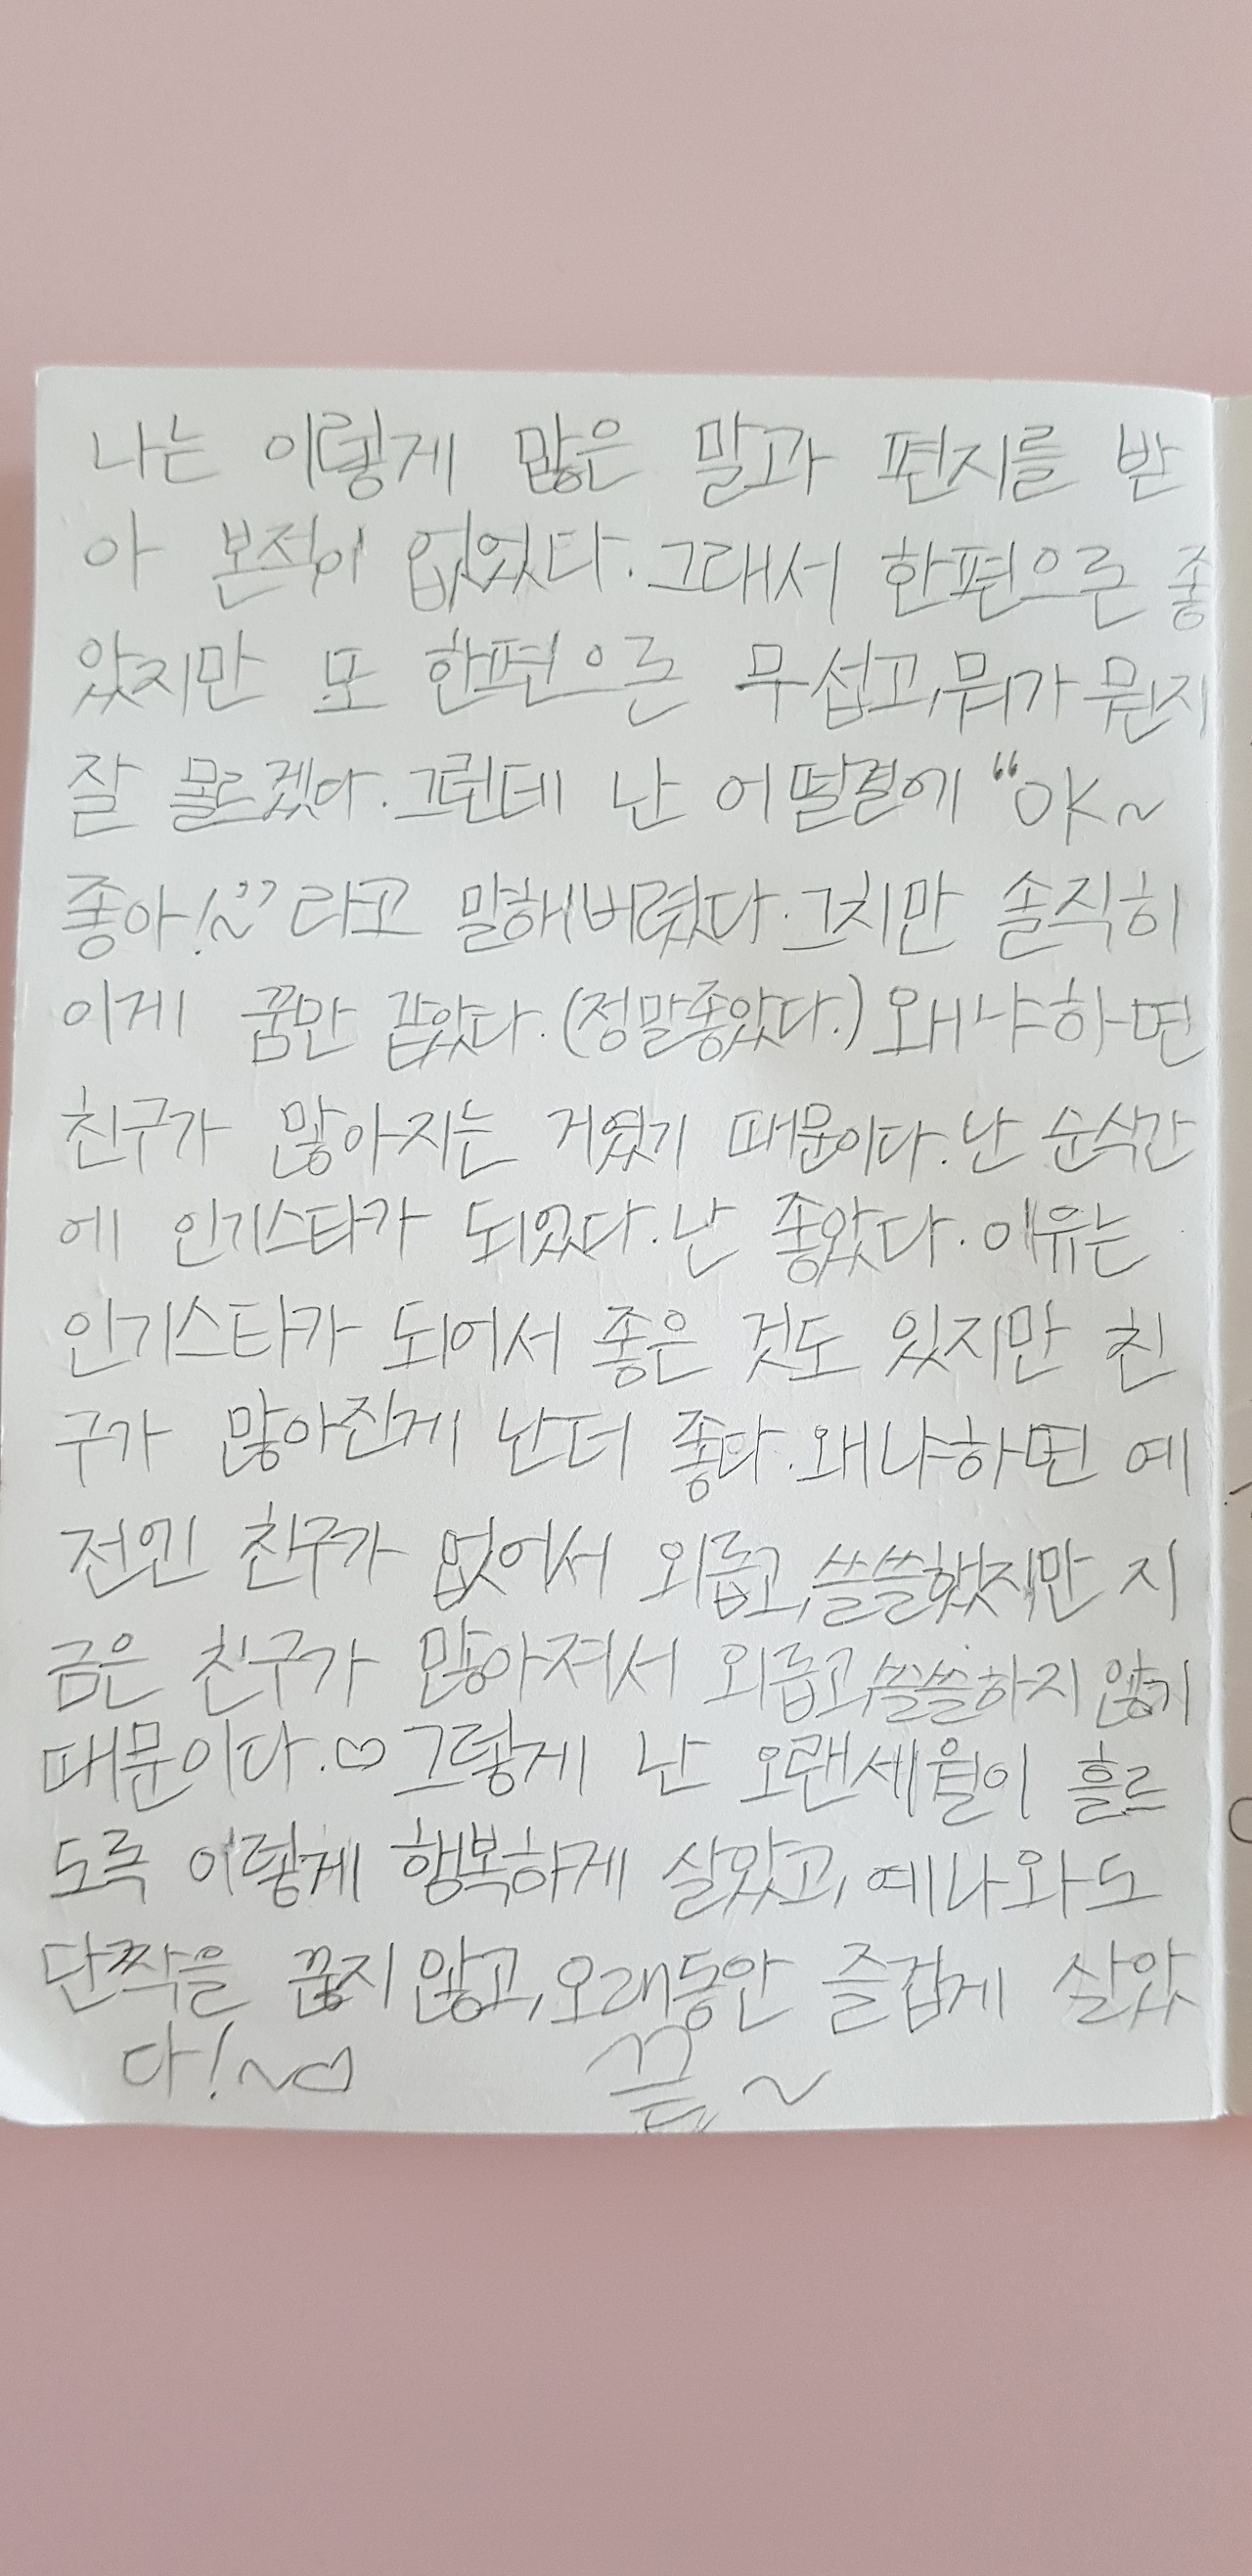 나는 이렇게 많은 말과 편지를 받
아 본적이 없었다. 그래서 한편으론 좋
았지만 또 한편으론 무섭고, 뭐가 뭔지
잘 몰르겠다. 그런데 난 어떨결에 "OK~
좋아!~"라고 말해버렸다. 그치만 솔직히
이게 꿈만 같았다. (정말좋았다.) 왜냐하면
친구가 많아지는 거였기 때문이다. 난 순식간
에 인기스타가 되었다. 난 좋았다. 이유는
인기스타가 되어서 좋은 것도 있지만 친
구가 많아진게 난더 좋다. 왜냐하면 예
전엔 친구가 없어서 외롭고, 쓸쓸했지만 지
금은 친구가 많아져서 외롭고, 쓸쓸하지 않기
때문이다.♡ 그렇게 난 오랜세월이 흘르
도록 이렇게 행복하게 살았고, 예나와도
단짝을 끊지 않고, 오래동안 즐겁게 살았
다!~♡ 끝~